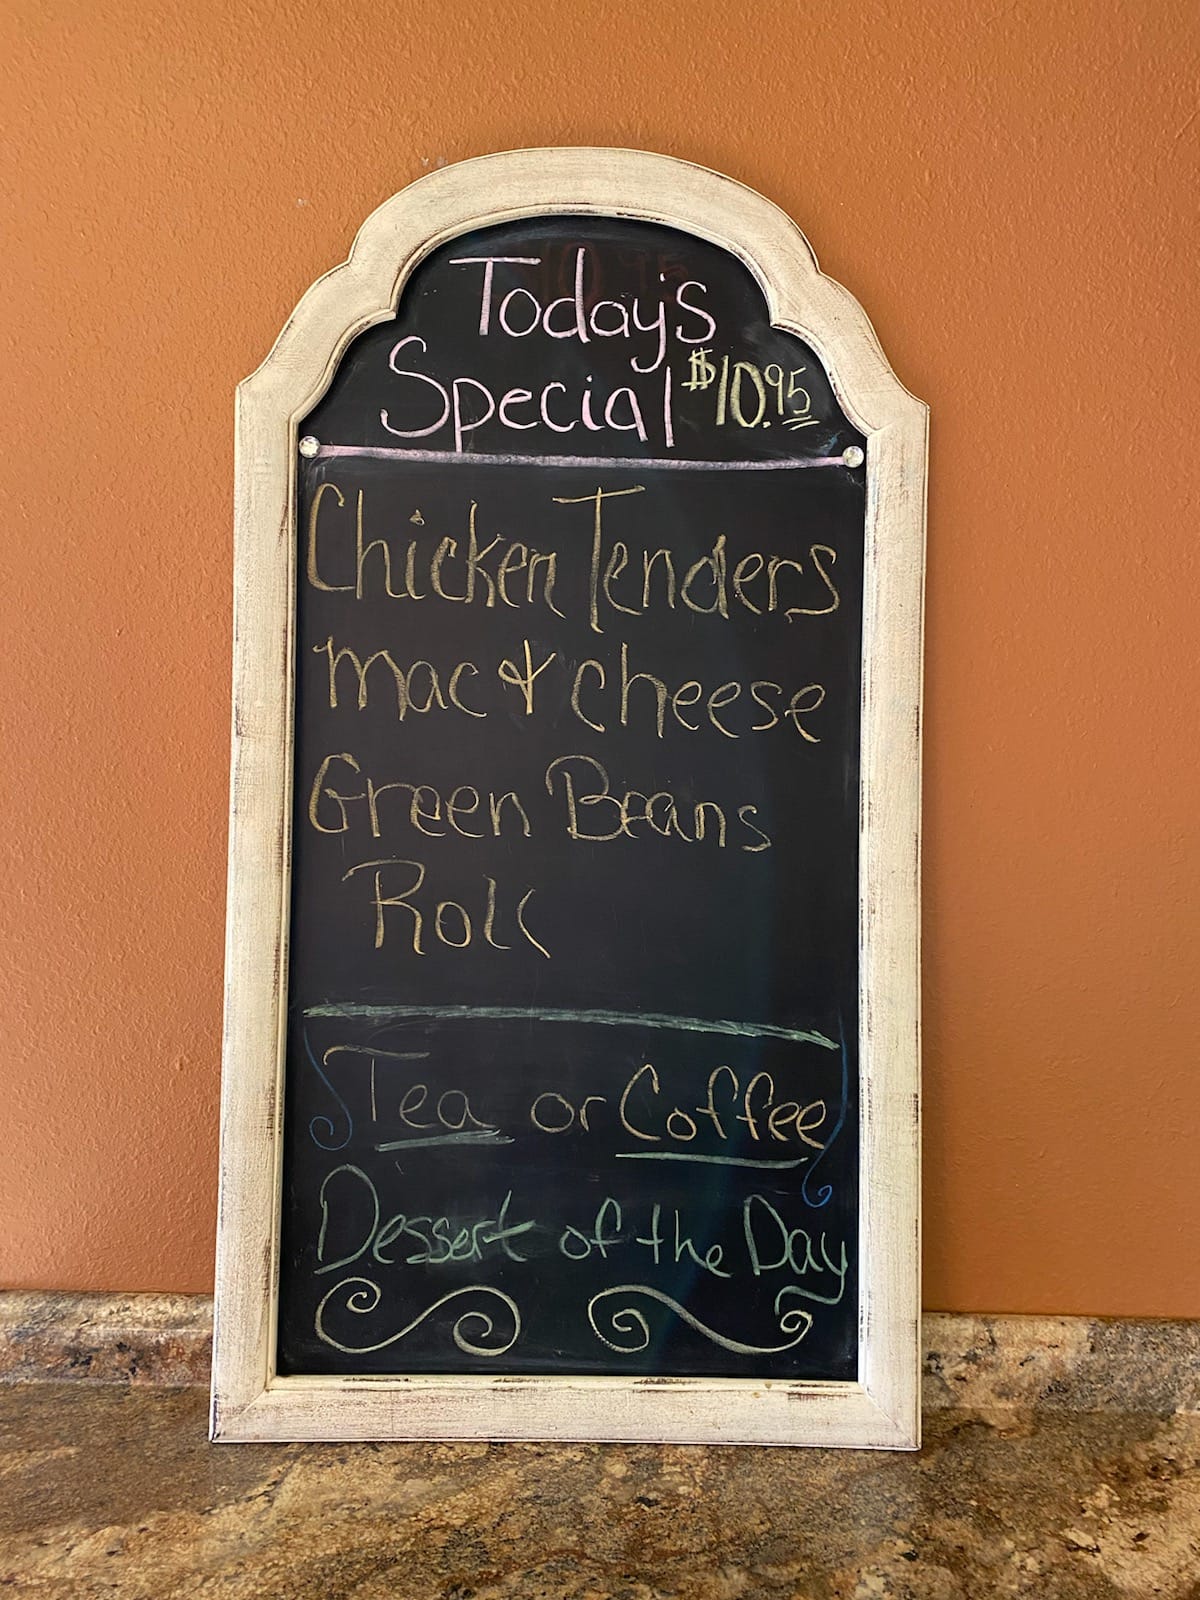 Today's
Special $10.95
Chicken Tenders
mac & cheese
Green Beans
Roll
Tea or Coffee
Dessert of the Day